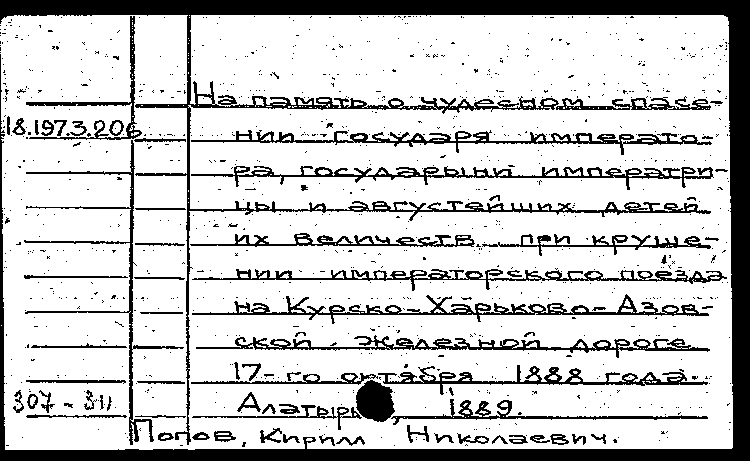 На память о чудесном спасе-
18.1973.206
нии государя императо-
ра, государыни императри-
цы и августейших детей
их величеств при круше-
нии императорского поезда
на Курско-Харьково-Азов-
ской железной дороге
17-го октября 1888 года.
307-311
Алатырь, 1889.
Попов, Кирилл Николаевич.